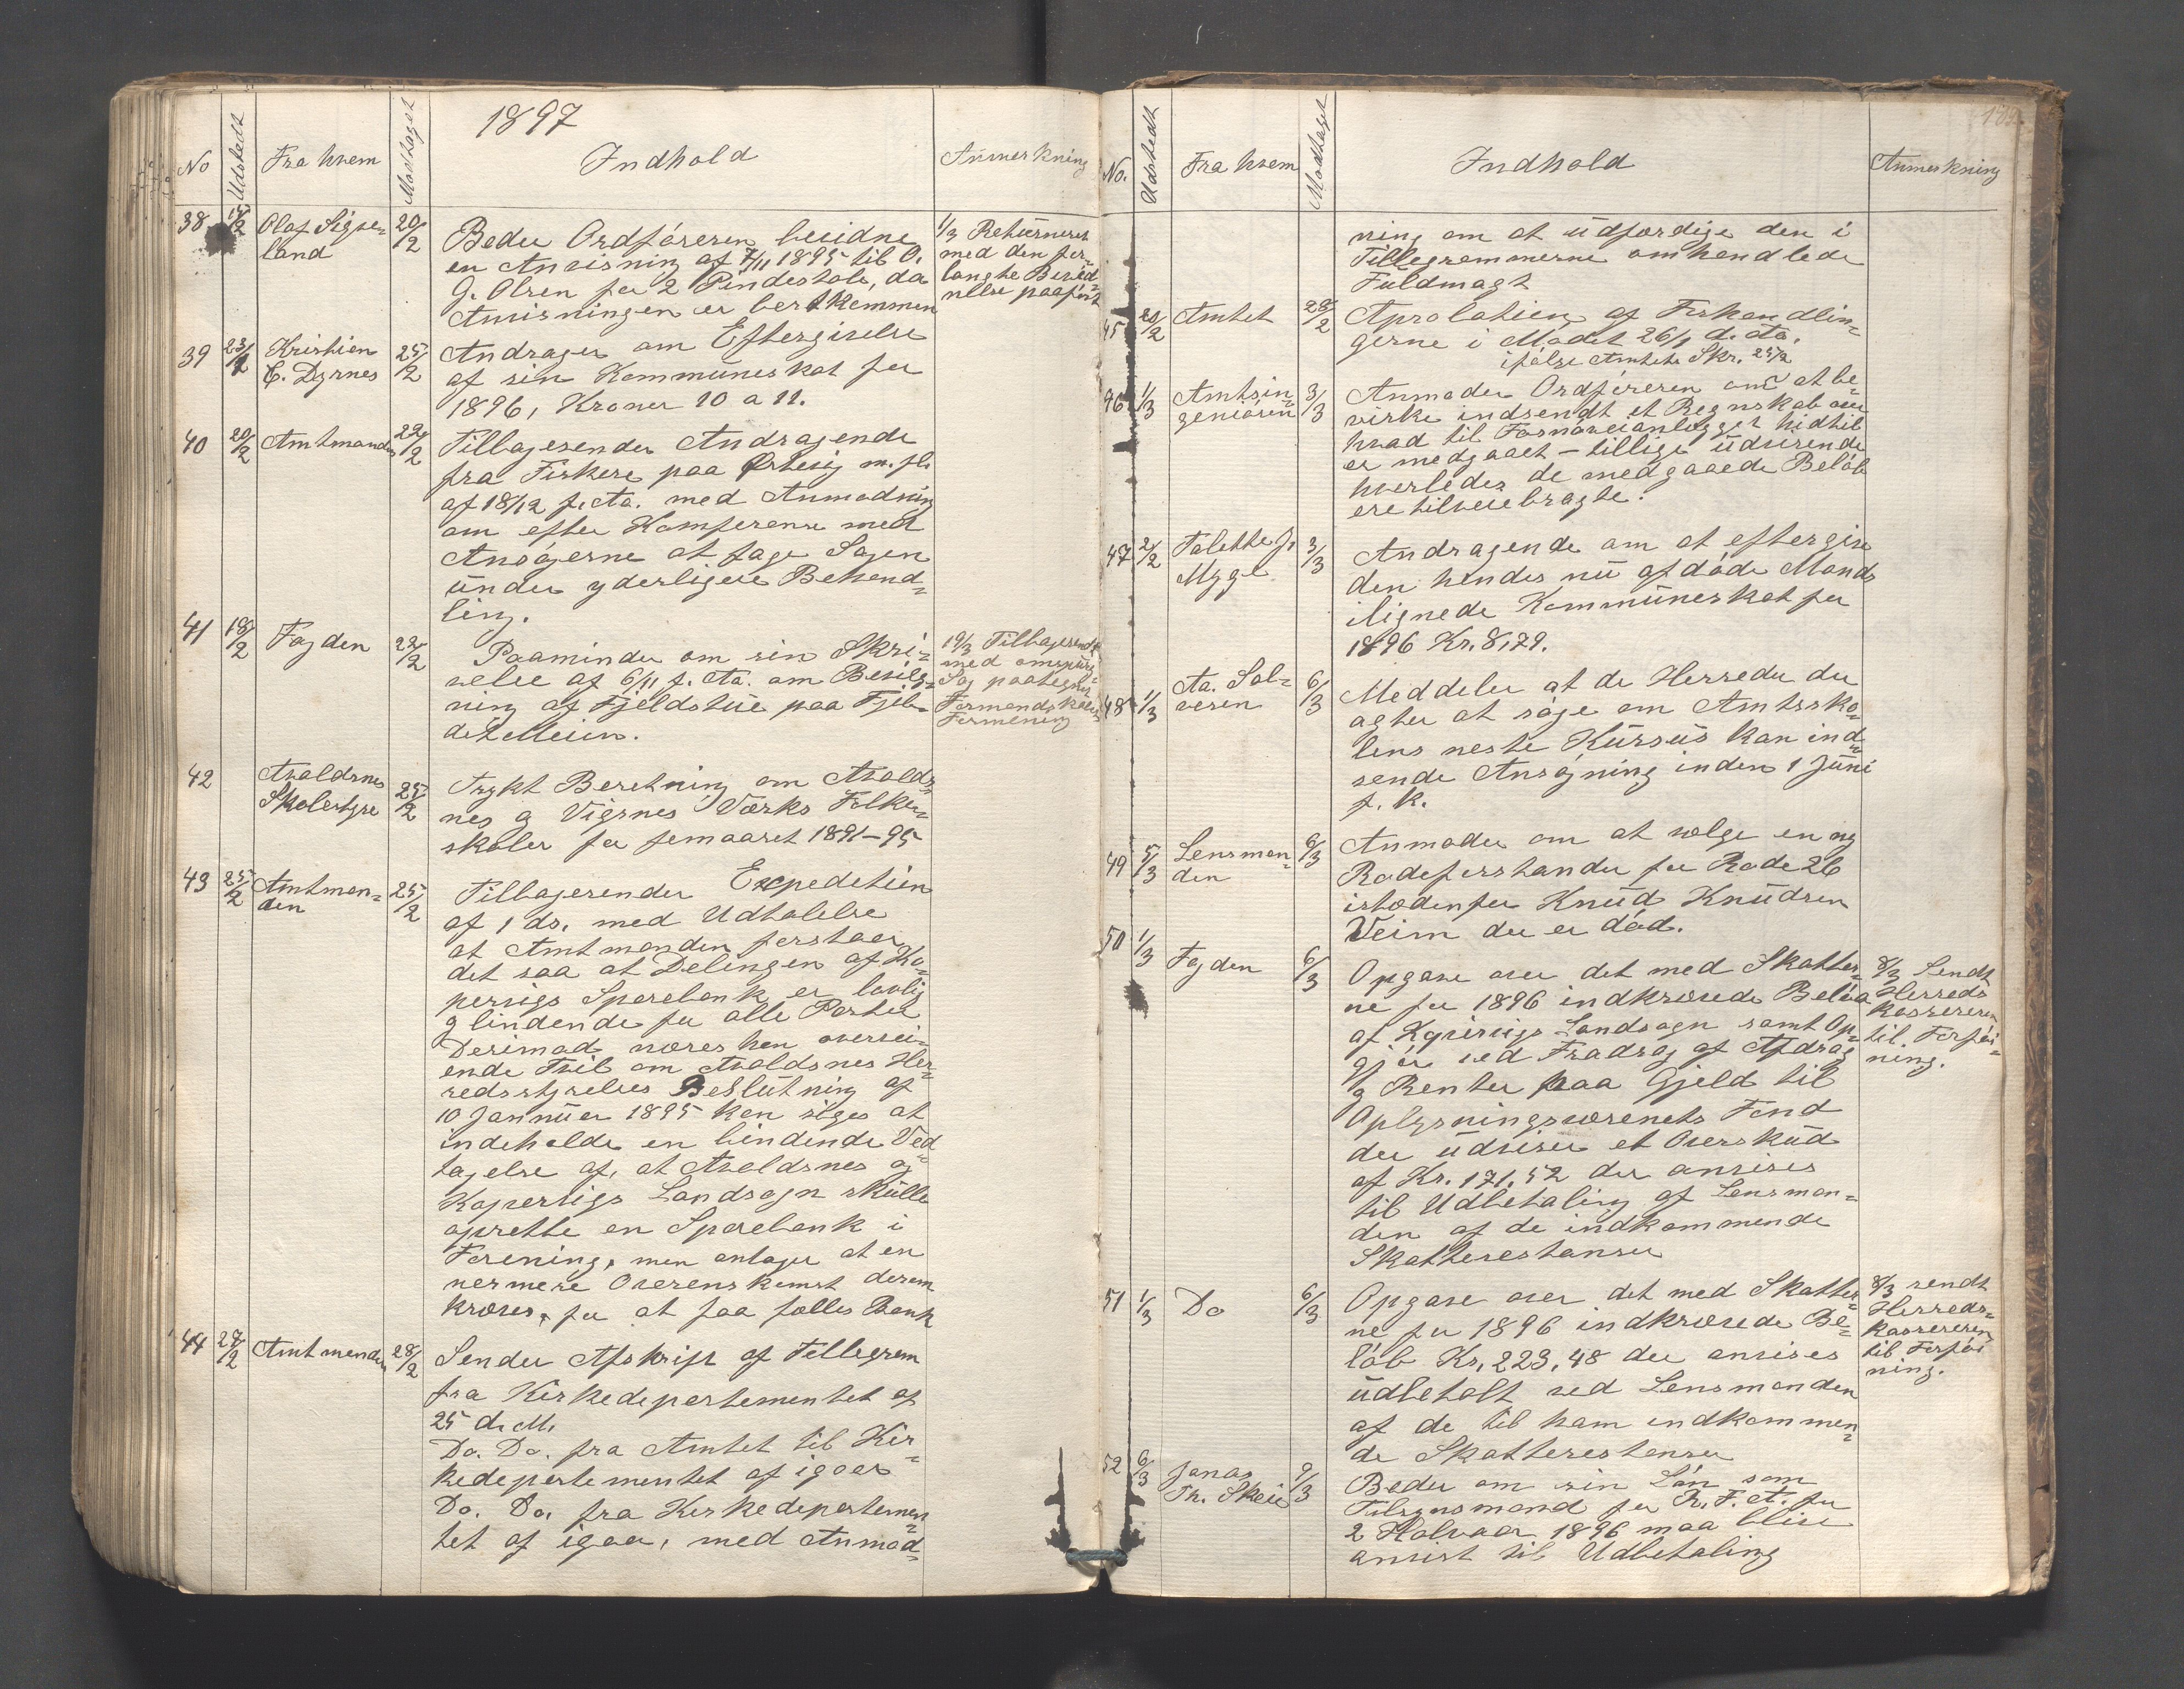 1897
No Udstedt Fra hvem Modtaget Indhold Anmerkning
38 15/2 Olaf Sigve= 20/2 Beder Ordføreren bevidne 1/3 Returneret
land en Anvisning af 7/11 1895 til O. med den for=
G. Olsen for 2 Pindestole, da langte Bevid=
Anvisningen er bortkommen nelse paaført
39 23/2 Kristian 25/2 Andrager om Eftergivelse
E. Dyrnes af sin Kommuneskat for
1896, Kroner 10 a 11.
40 20/2 Amtmanden 22/2 Tilbagesender Andragende
fra Fiskere paa m. fl.
af 18/12 f. Aa. med Anmodning
om efter Konferense med
Ansøgerne at tage Sagen
under yderligere Behand=
ling.
41 18/2 Fogden 22/2 Paaminder om sin Skri= 19/3 Tilbagesendt
velse af 6/11 f. Aa. om Besig= med omspurg=
ning af Fjeldstue paa Sag paategnet
Formandskabets
Formening
42 Avaldsnes 25/2 Trykt Beretning om Avalds=
Skolestyre nes og Vigsnes Værks Folke=
skoler for femaaret 1891-95
43 25/2 Amtman= 25/2 Tilbagesender Expedition
den af 1 ds. med Udtalelse
at Amtmanden forstaar
det saa at Delingen af Ko=
pervigs Sparebank er lovlig
og bindende for alle Parter
Derimod næres hen oversei=
ende Tvil om Avaldsnes Her=
redsstyrelses Beslutning af
10 Jannuar 1895 kan siges at
indeholde en bindende Ved=
tagelse af, at Avaldsnes og
Kopervigs Landsogn skulle
oprette en Sparebank i
Forening, men antager at en
nermere Overenskomst derom
kræves, for at faa fælles Bank
44 27/2 Amtmanden 28/2 Sender Afskrift af Tellegram
fra Kirkedepartementet af
25 d. M.
Do. Do. fra Amtet til Kir=
kedepartementet af igaar
Do. Do. fra Kirkedepartemen=
tet af igaar, med Anmod=
No. Udstedt Fra hvem Modtaget Indhold Anmerkning
ning om at udfærdige den i
Tillegrammerne omhandlede
Fuldmagt
45 20/2 Amtet 28/2 Aprobation af Forhandlin=
gerne i Mødet 26/1 d. Aa.
ifølge Amtets Skr. 25/2
46 1/3 Amtsin= 3/3 Anmoder Ordføreren om at be=
geniøren virke indsendt et Regnskab over
hvad til Fosnaveianlegget hidtil
er medgaaet - tillige udvisende
hvorledes de medgaaede Beløb
ere tilveiebragte.
47 2/2 Talette J. 3/3 Andragende om at eftergive
Mygge den hendes nu afdøde Mands
ilignede Kommuneskat for
1896 Kr. 8,79.
48 1/3 Aa. Sal= 6/3 Meddeler at de Herreder der
vesen agter at søge om Amtssko=
lens neste Kursus kan ind=
sende Ansøgning inden 1 Juni
f. k.
49 5/3 Lensman= 6/3 Anmoder om at velge en ny
den Rodeforstander for Rode 26
istedenfor Knud Knudsen
Veim der er død.
50 1/3 Fogden 6/3 Opgave over det med Skatter= 8/3 Sendt
ne for 1896 indkrævede Beløb Herreds
af Kopervigs Landsogn samt Op= kassereren
gjør ved Fradrag af Afdrag til Forføi=
og Renter paa Gjeld til ning.
Oplysningsvæsenets Fond
der udviser et Overskud
af Kr. 171,52 der anvises
til Udbetaling af Lensman=
den af de indkommende
Skatterestanser
51 1/3 Do 6/3 Opgave over det med Skatter= 8/3 sendt
ne for 1896 indkrævede Be= Herreds=
løb Kr. 223,48 der anvises kassereren
udbetalt ved Lensmanden til Forføi
af de til ham indkommen= ning.
de Skatterestanser
52 6/3 Jonas 9/3 Beder om sin Løn som
Th. Skeie Tilsynsmand for R. F. A. for
2 Halvaar 1896 maa blive
anvist til Udbetaling